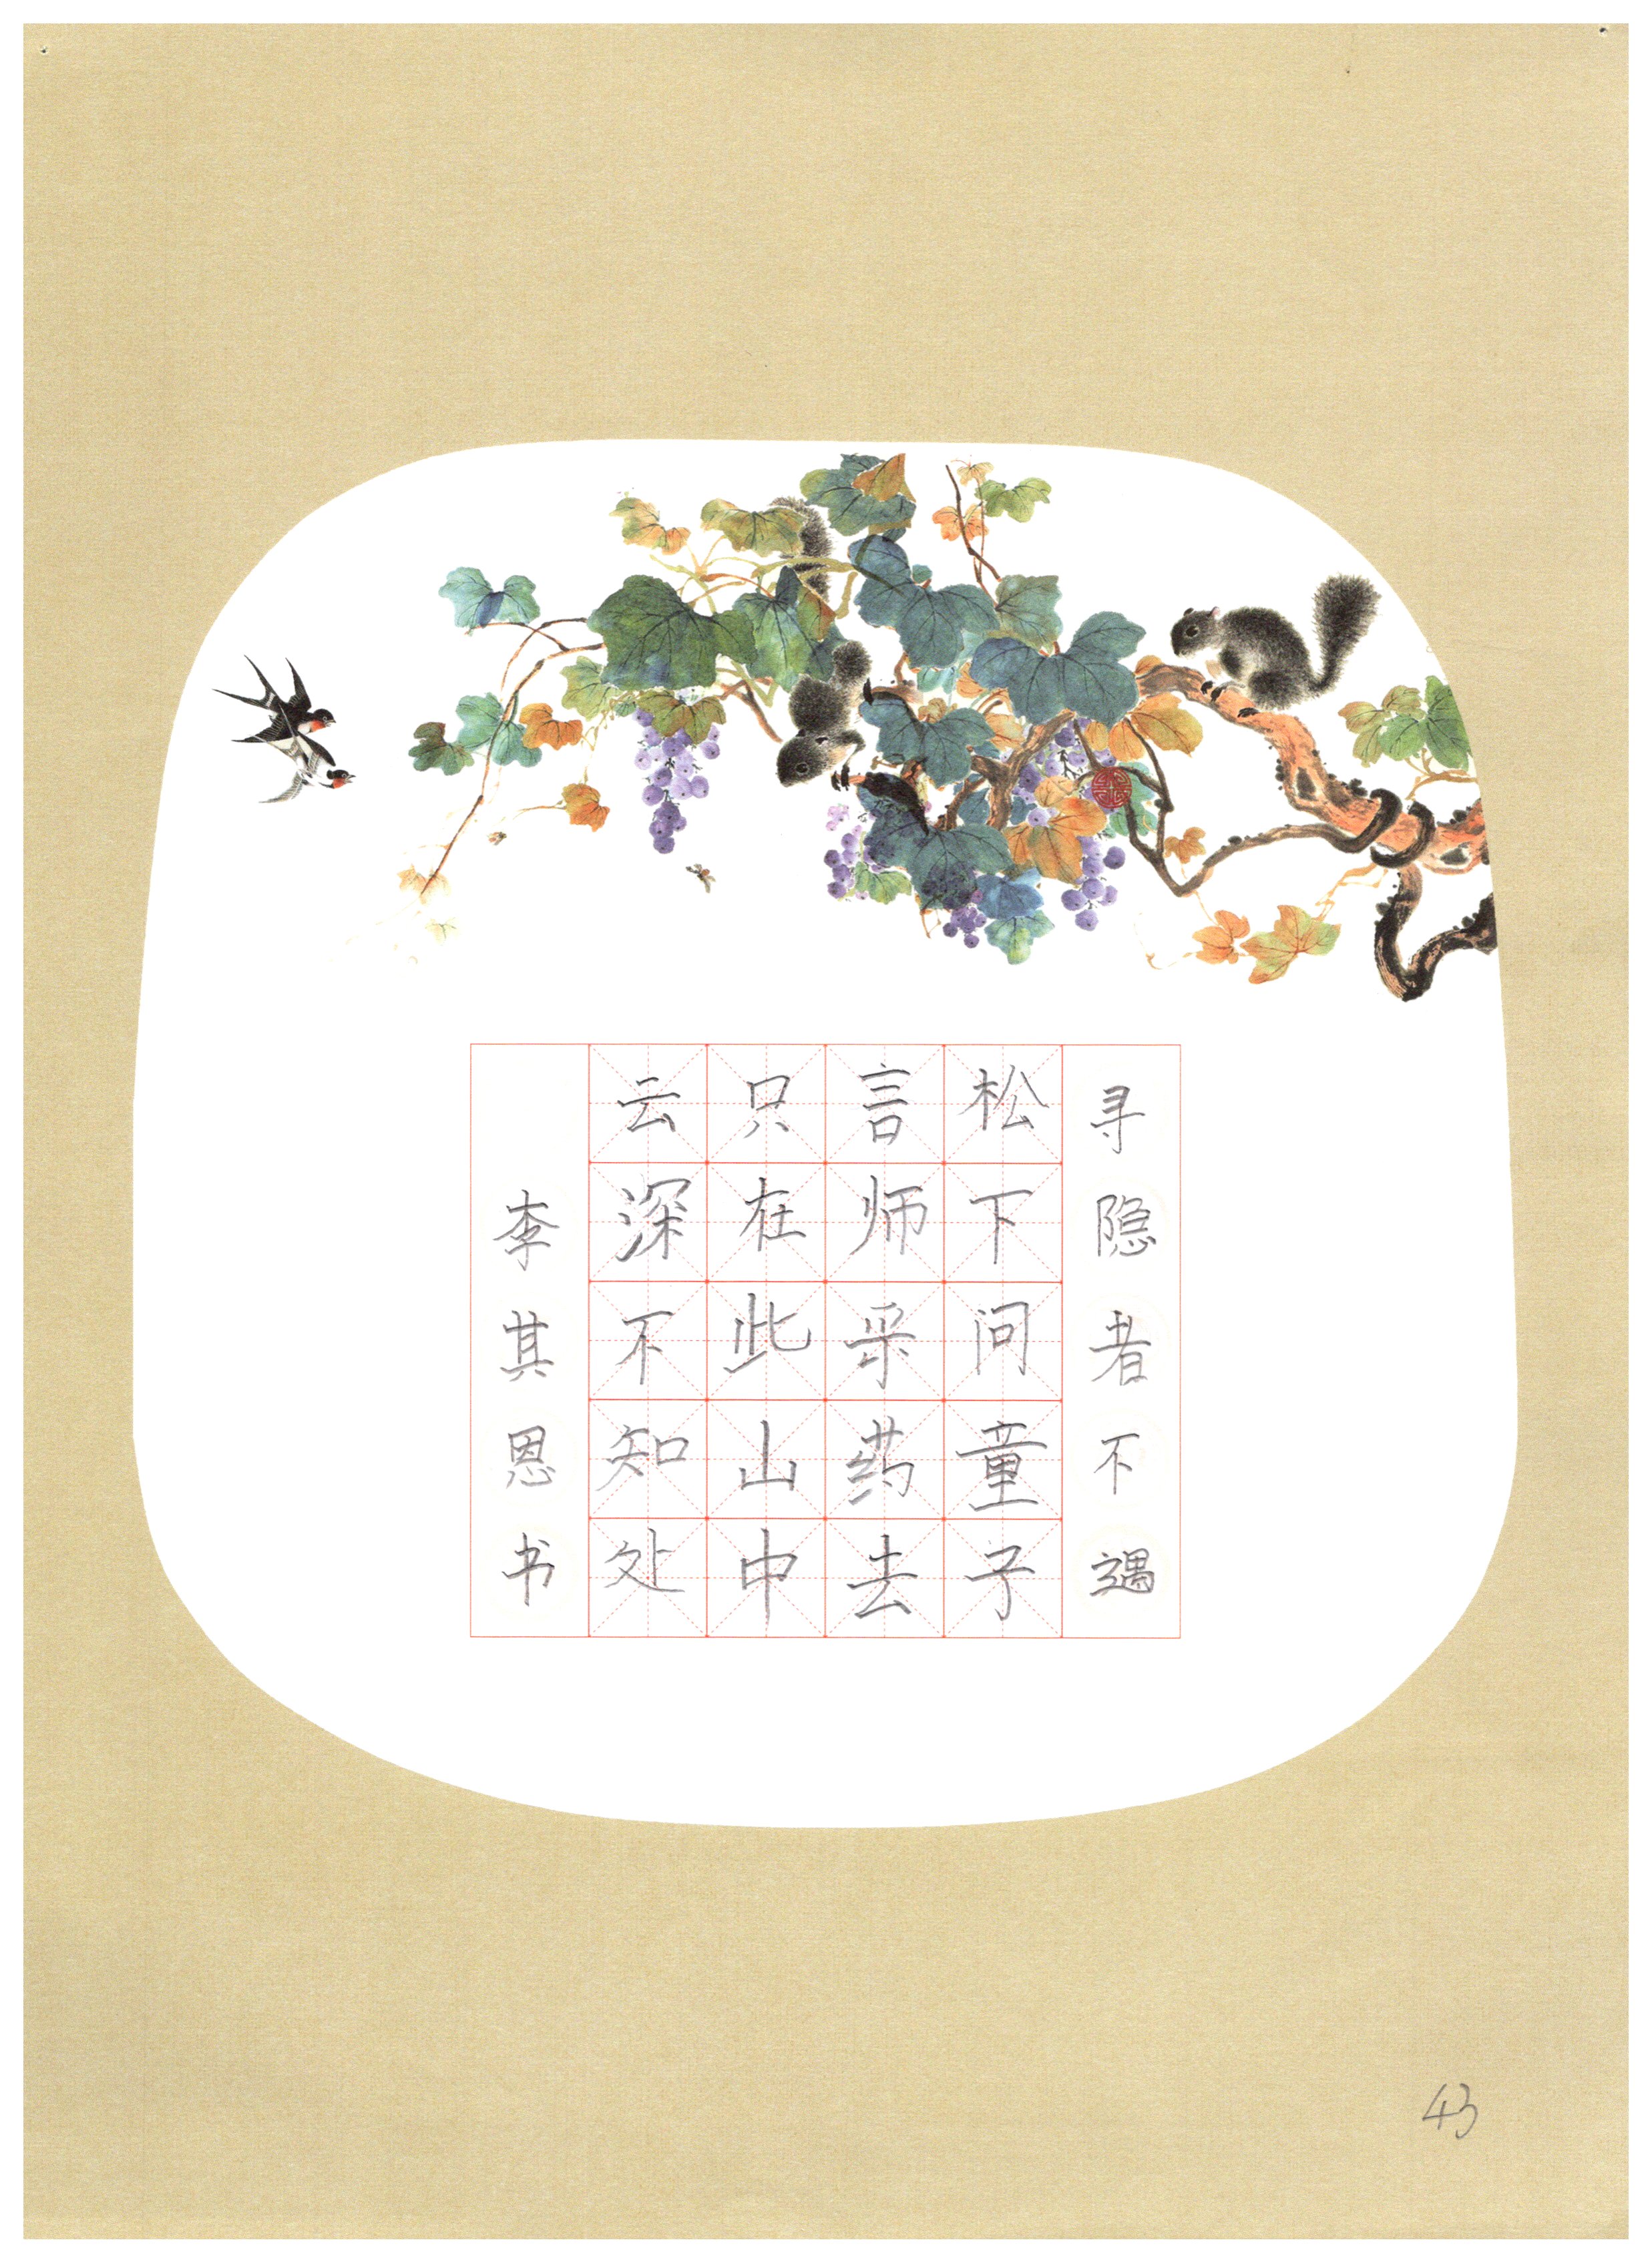 寻隐者不遇
松下问童子
言师采药去
只在此山中
云深不知处
李其恩书
43